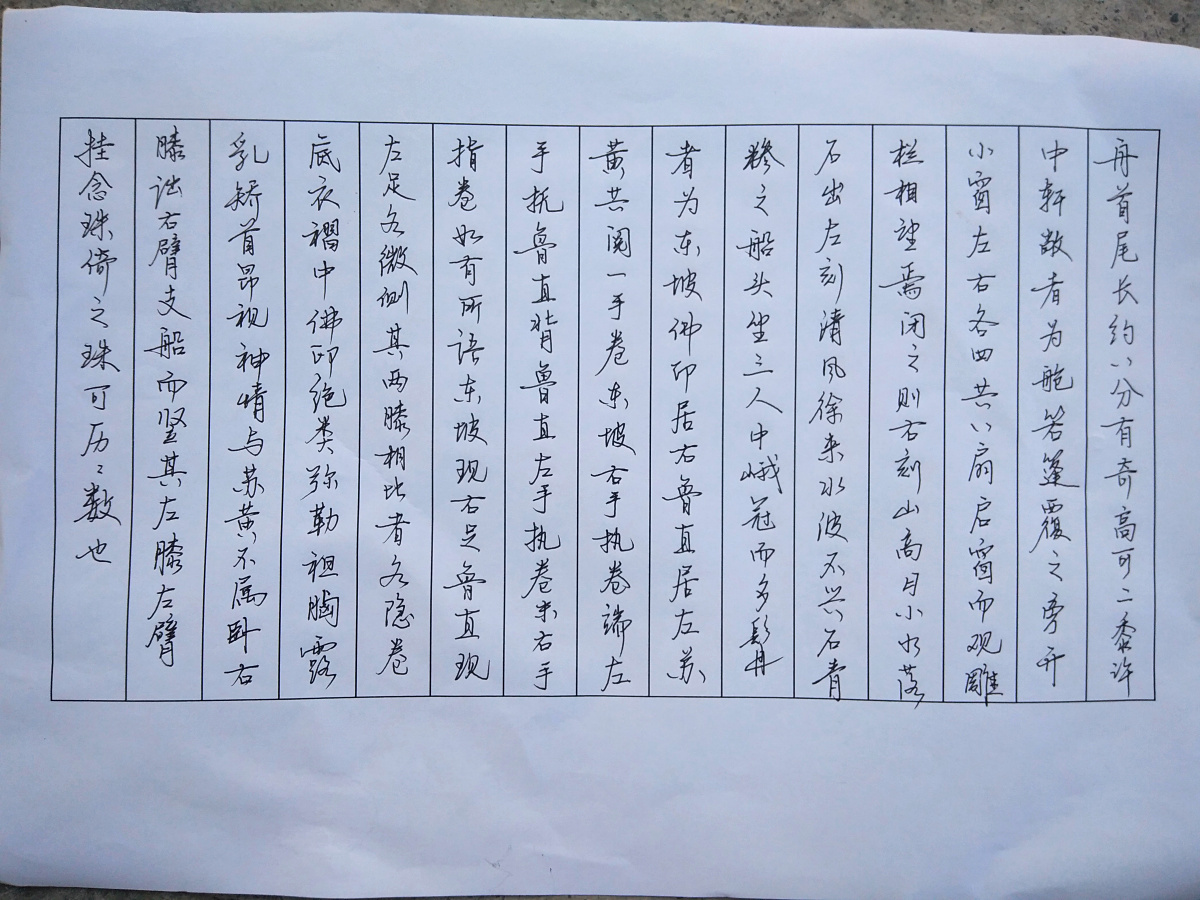 舟首尾长约八分有奇高可二黍许
中轩敞者为舱箬篷覆之旁开
小窗左右各四共八扇启窗而观雕
栏相望焉闭之则右刻山高月小水落
石出左刻清风徐来水波不兴石青
糁之船头坐三人中峨冠而多髯
者为东坡佛印居右鲁直居左苏
黄共阅一手卷东坡右手执卷端左
手抚鲁直背鲁直左手执卷末右手
指卷如有所语东坡现右足鲁直现
左足各微侧其两膝相比者各隐卷
底衣褶中佛印绝类弥勒袒胸露
乳矫首昂视神情与苏黄不属卧右
膝诎右臂支船而竖其左膝左臂
挂念珠倚之珠可历〻数也